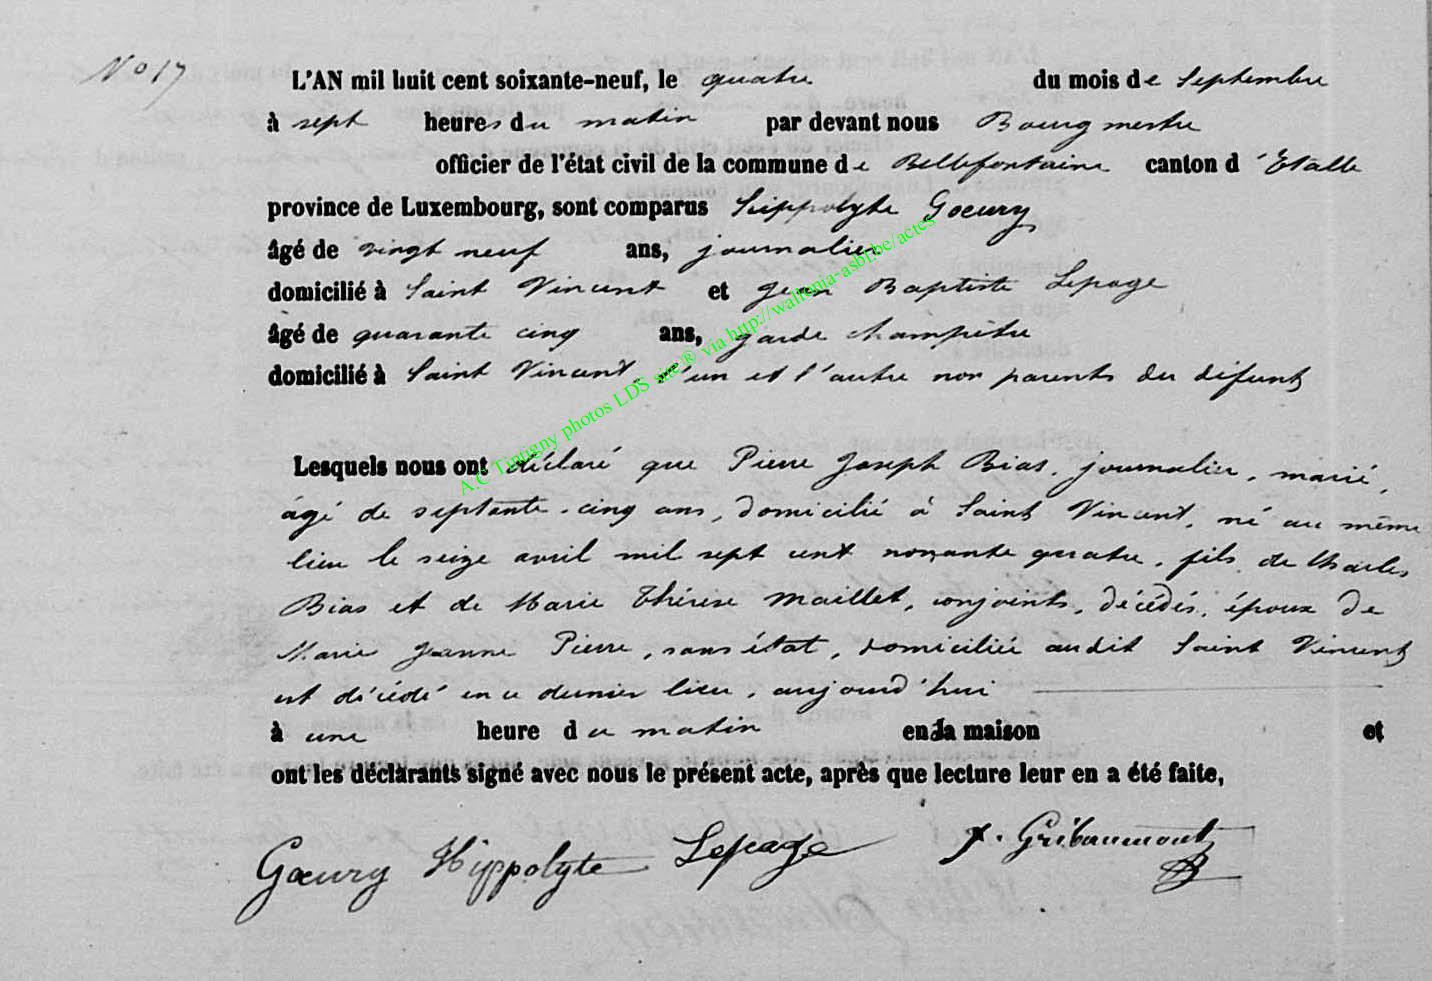 No 17
L'AN mil huit cent soixante-neuf, le quatre du mois de Septembre
à sept heures du matin par devant nous Bourgmestre
officier de l'état civil de la commune de Bellefontaine canton d'Etalle
province de Luxembourg, sont comparus Hippolyte Goeury
âgé de vingt neuf ans, journalier
domicilié à Saint Vincent et Jean Baptiste Lepage
âgé de quarante cinq ans, garde champêtre
domicilié à Saint Vincent, l'un et l'autre non parents du défunt
A.C Tintigny photos LDS site® via http://wallonia-asbl.be/actes
Lesquels nous ont déclaré que Pierre Joseph Bias, journalier, marié,
âgé de septante-cinq ans, domicilié à Saint Vincent, né au même
lieu le seize avril mil sept cent nonante quatre, fils de Charles
Bias et de Marie Thérèse Maillet, conjoints, décédés, époux de
Marie Jeanne Pierre, sans état, domiciliée audit Saint Vincent
est décédé en ce dernier lieu, aujourd'hui
à une heure du matin en sa maison et
ont les déclarants signé avec nous le présent acte, après que lecture leur en a été faite,
Goeury Hippolyte Lepage J. Gribaumont